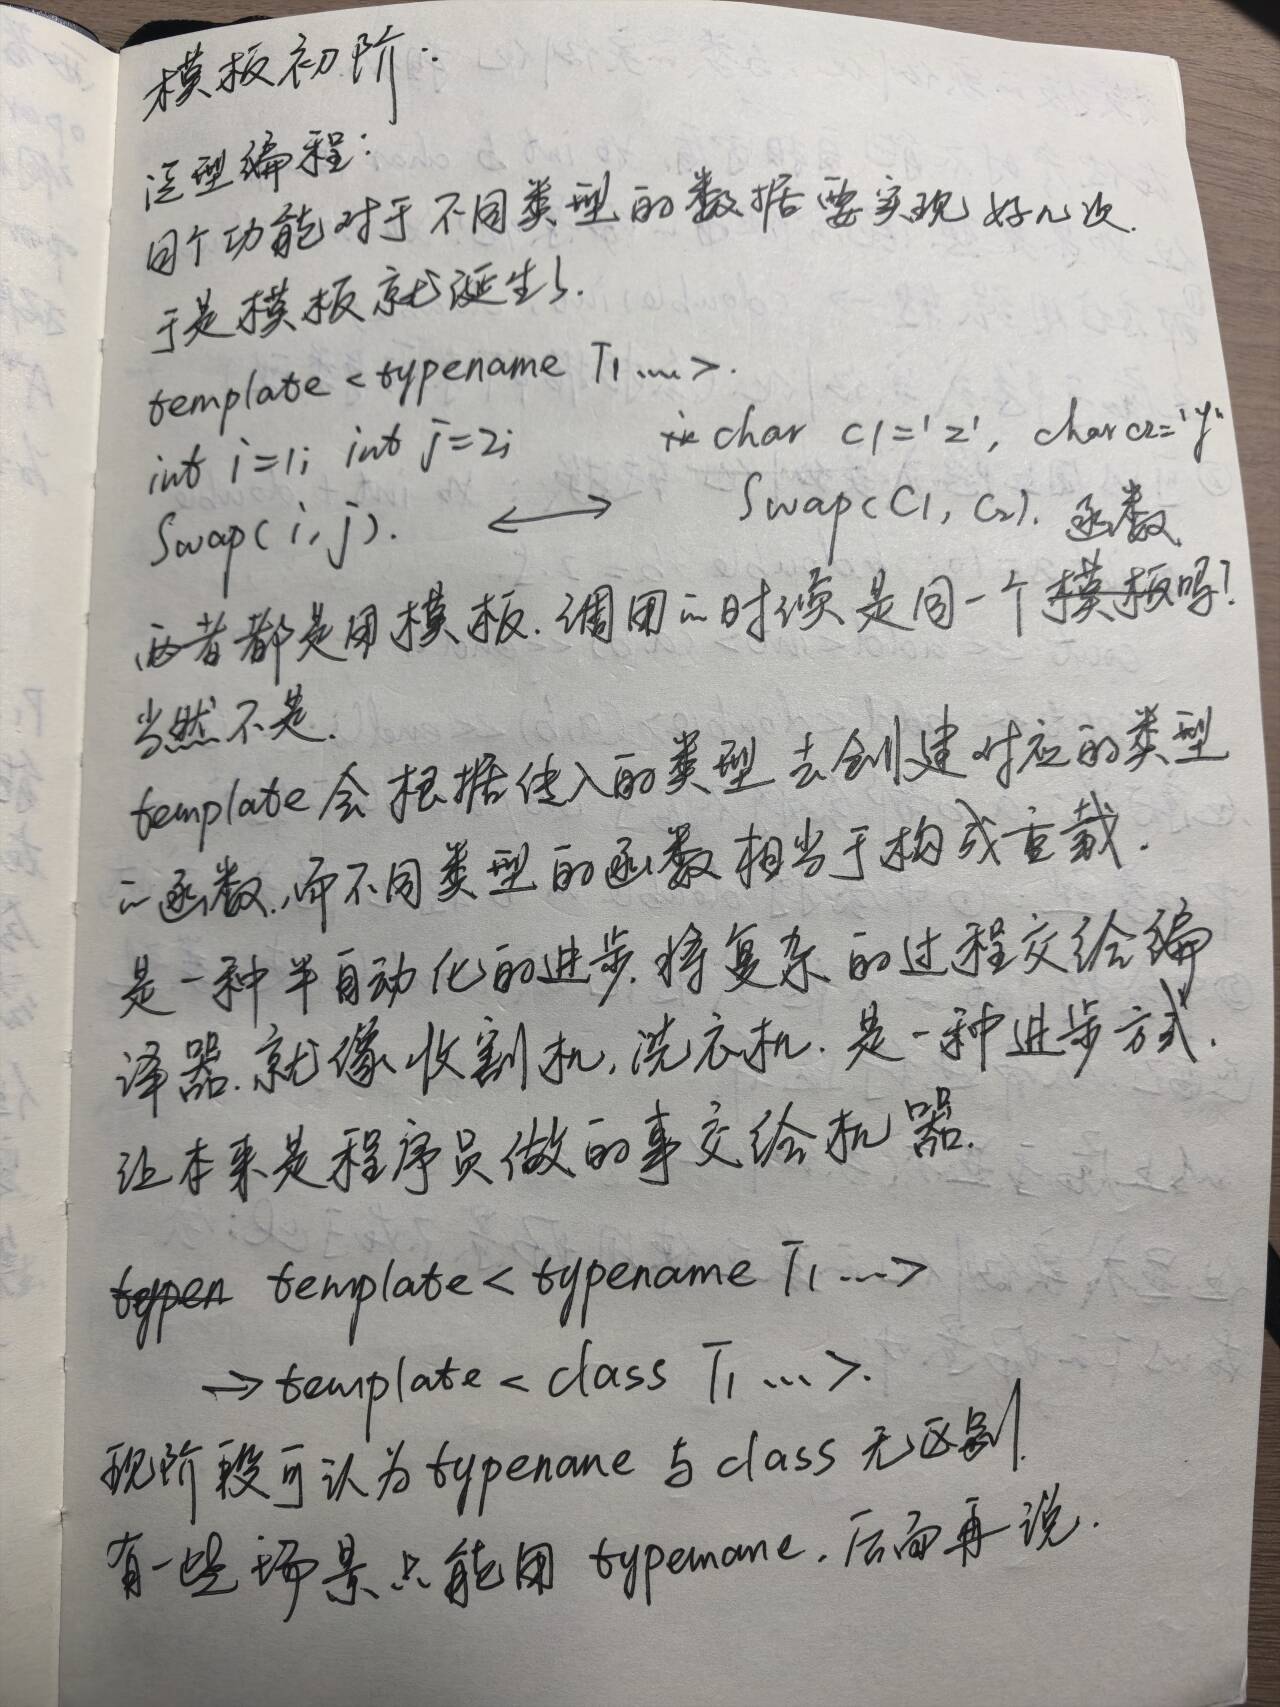 模板初阶：
泛型编程：
同个功能对于不同类型的数据要实现好几次.
于是模板就诞生了.
template < typename T1 ... >.
int i=1; int j=2; char c1='z', char c2='y'
Swap(i, j). ⟷ Swap(C1, C2). 函数
两者都是用模板.调用的时候是同一个模板吗?
当然不是.
template会根据传入的类型去创建对应的类型
的函数.,而不同类型的函数相当于构成重载.
是一种半自动化的进步.将复杂的过程交给编
译器.就像收割机,洗衣机.是一种进步方式.
让本来是程序员做的事交给机器.
typen template < typename T1 ... >
→ template < class T1 ... >.
现阶段可认为typename与class无区别.
有一些场景只能用typename.后面再说.